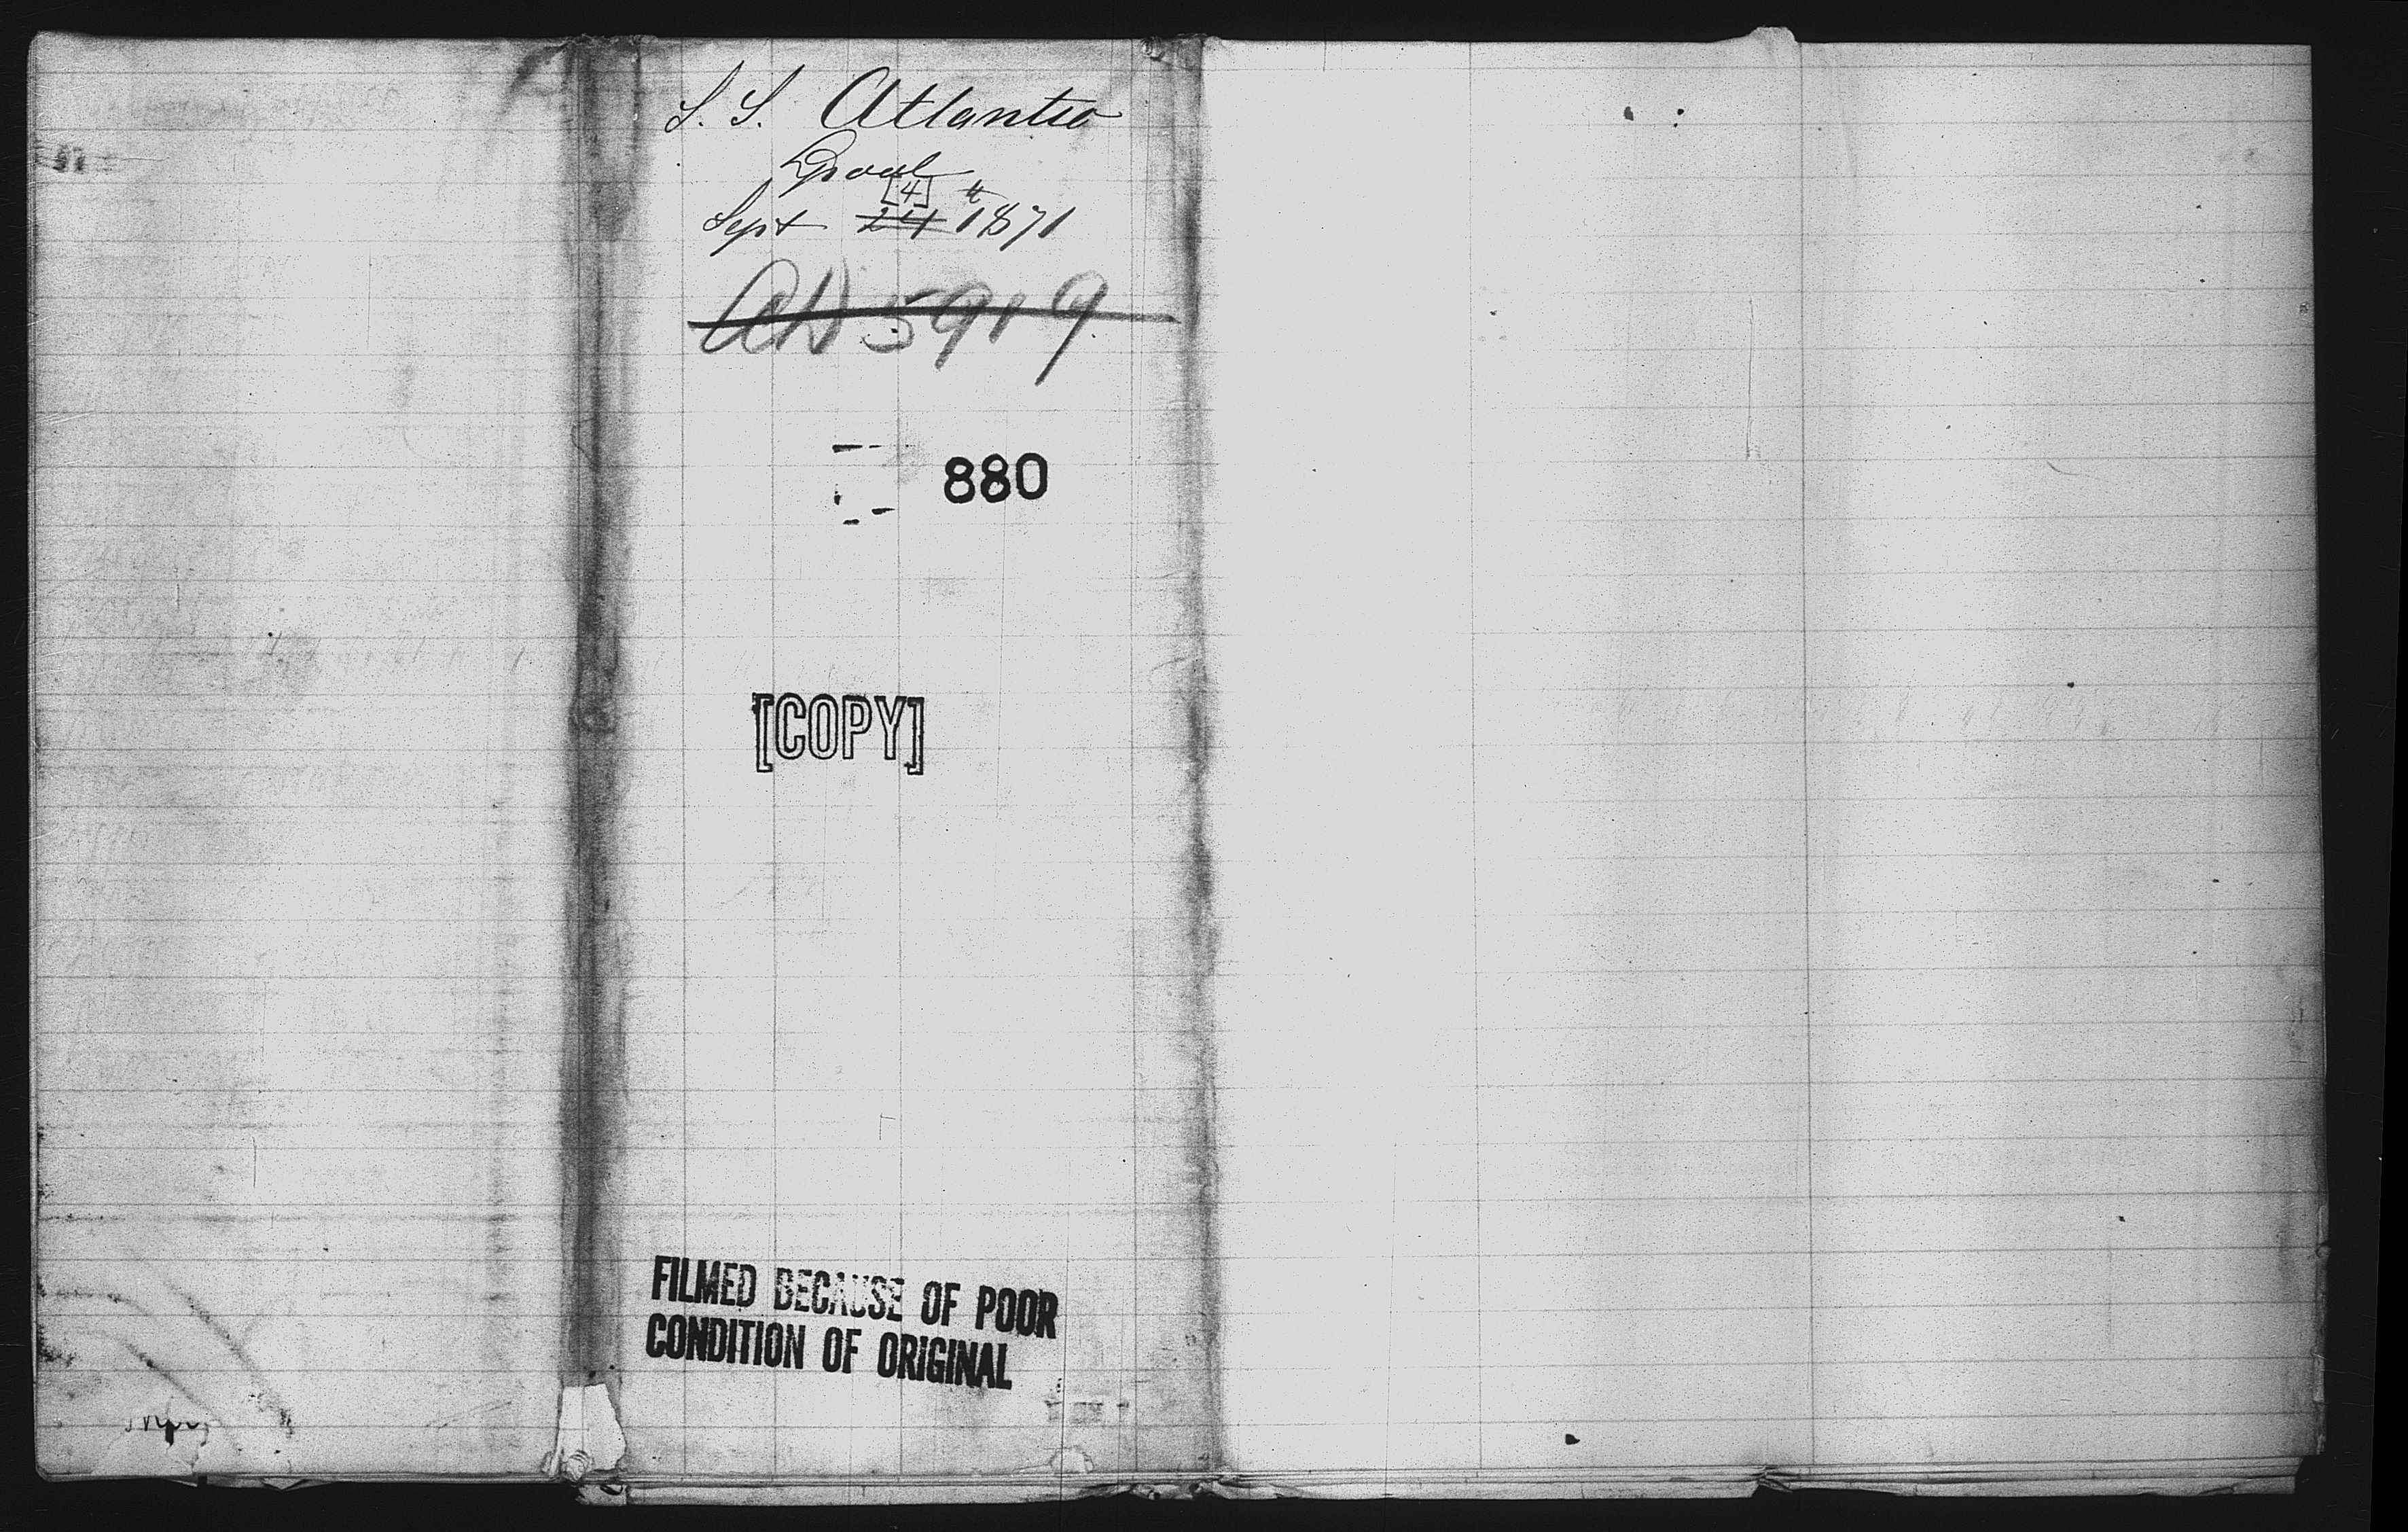 S. S. Atlantic
L'pool
[4] th
Sept 24 1871
AD 5919
880
[COPY]
FILMED BECAUSE OF POOR
CONDITION OF ORIGINAL